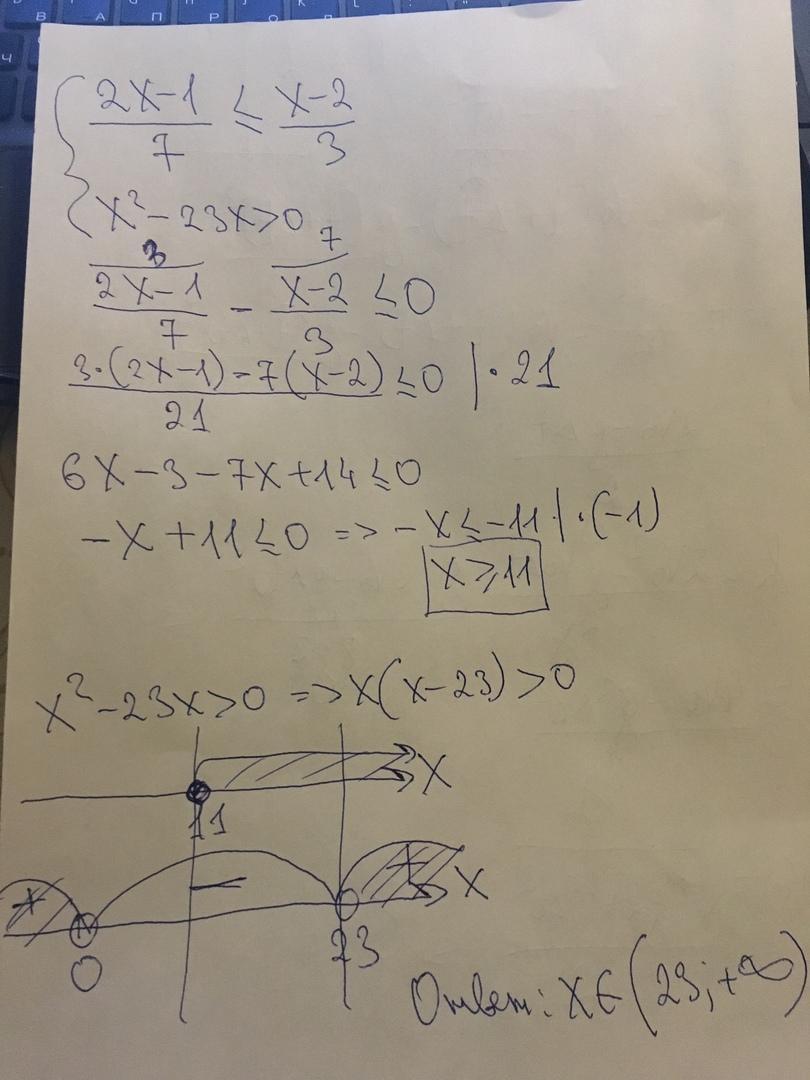 { (2x-1)/7 ≤ (x-2)/3
x² - 23x > 0
3 7
(2x-1)/7 - (x-2)/3 ≤ 0
(3·(2x-1) - 7(x-2))/21 ≤ 0 | · 21
6x - 3 - 7x + 14 ≤ 0
-x + 11 ≤ 0 => -x ≤ -11 | · (-1)
x ≥ 11
x² - 23x > 0 => x(x-23) > 0
x
11
+ - + x
0 23
Ответ: x∈(23; +∞)